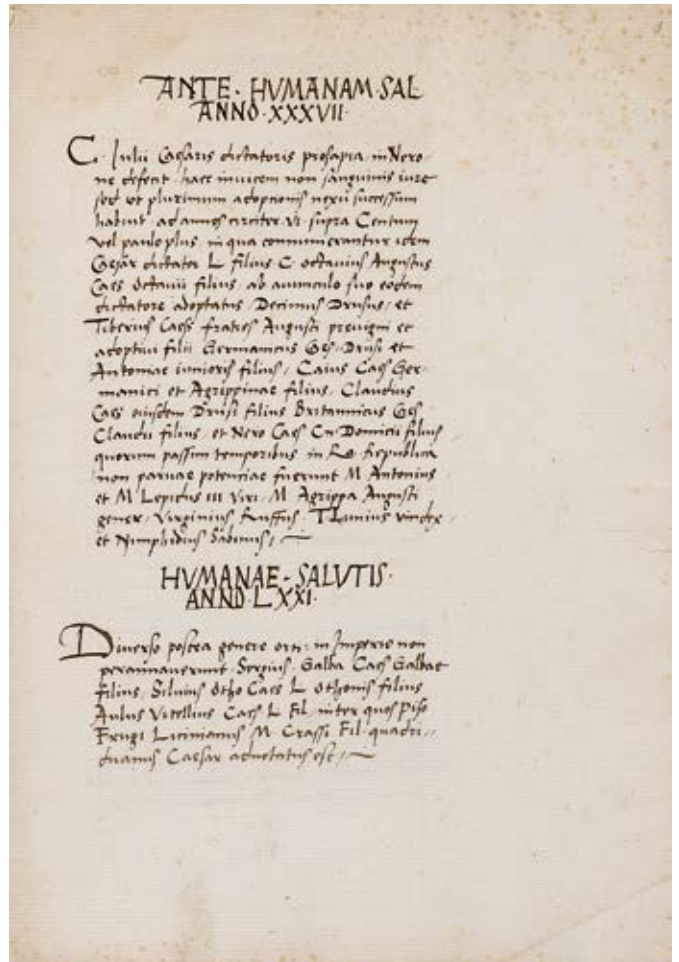 ANTE · HVMANAM · SAL
ANNO · XXXVII ·
C · Iulii Caesaris dictatoris prosapia, in Nero
ne defecit · haec invicem non sanguinis iure
sed ut plurimum adoptionis nexu successum
habuit · ad annos circiter · VI · supra Centum
vel paulo plus, in qua connumerantur idem
Caesar dictator L filius C · Octavius Augustus
Caes Octavii filius, ab avunculo suo eodem
dictatore adoptatus, Decimus Drusus, et
Tiberius Caes fratres Augusti previgni et
adoptivi filii Germanicus Caes · Drusi et
Antoniae iunioris filius, Caius Caes Ger
manici et Agrippinae filius, Claudius
Caes eiusdem Drusi filius Britannicus Caes
Claudii filius, et Nero Caes Cn Domicii filius
quorum passim temporibus in Ro · Republica
non parvae potenciae fuerunt M Antonius
et M Lepidus III Viri, M Agrippa Augusti
gener, Virginius Ruffus · vindex,
et Nimphidius Sabinus,
HVMANAE · SALVTIS ·
ANNO · LXXI ·
Diverso postea genere orti in Imperio non
Sergius · Galba Caes Galbae
filius, Silvius Otho Caes L Othonis filius
Aulus Vitellius Caes L Fil, inter quos Piso
Frugi Licinianus M Crassi Fil · quadri,,
duanus Caesar est,